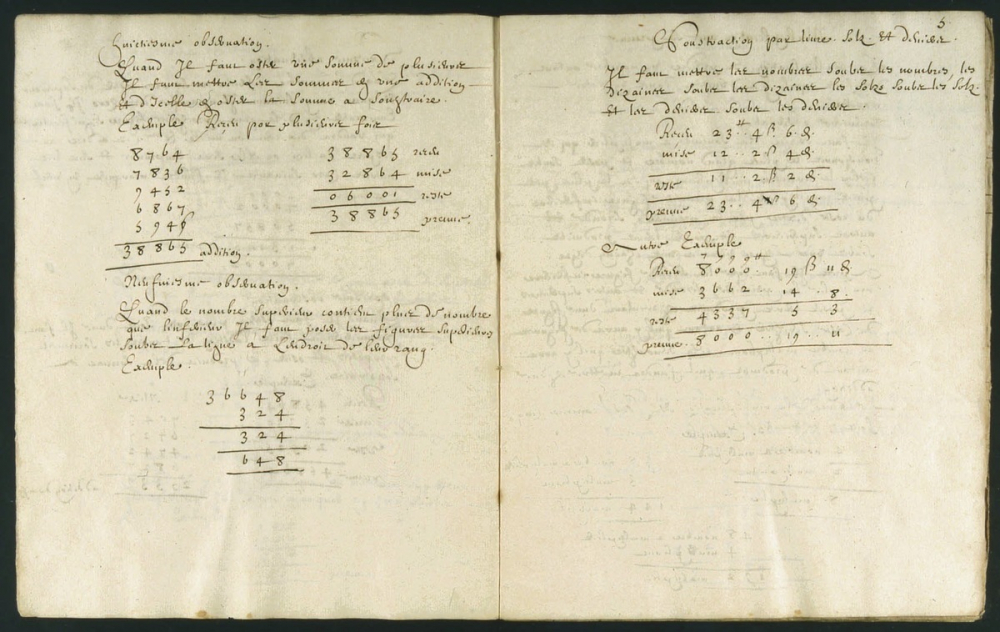 huictiesme observation.
Quand Il faut oster une somme de plusieurs
Il faut mettre Les sommes en une addition
et d'Icelle en oster la somme a soustraire.
Exemple Receu par plusieurs fois
8764
7836
9452
6867
594
38865 addition.
38865 receu
32864 mise
06001 reste
38865 preuve.
Neufviesme observation.
Quand le nombre superieur contient plus de nombre
que l'inferieur Il faut poser les figures superieurs
soubz La ligne a L'endroit de leur rang.
Exemple.
36648
324
324
648
5
Soustraction par livre solz Et denier.
Il faut mettre les nombres soubz les nombres, les
dizaines soubz les dizaines les solz soubz les solz
Et les deniers soubz les deniers.
Receu 23 .. 4 ß 6 d.
mise 12 .. 2 ß 4 d.
reste 11 .. 2 ß 2 d.
preuve 23 .. 4 ß 6 d.
Autre Exemple
7 9 9
Receu 8000 .. 19 ß 11 d
mise 3662 14 .. 8.
reste 4337 5 3
preuve 8000 .. 19 .. 11